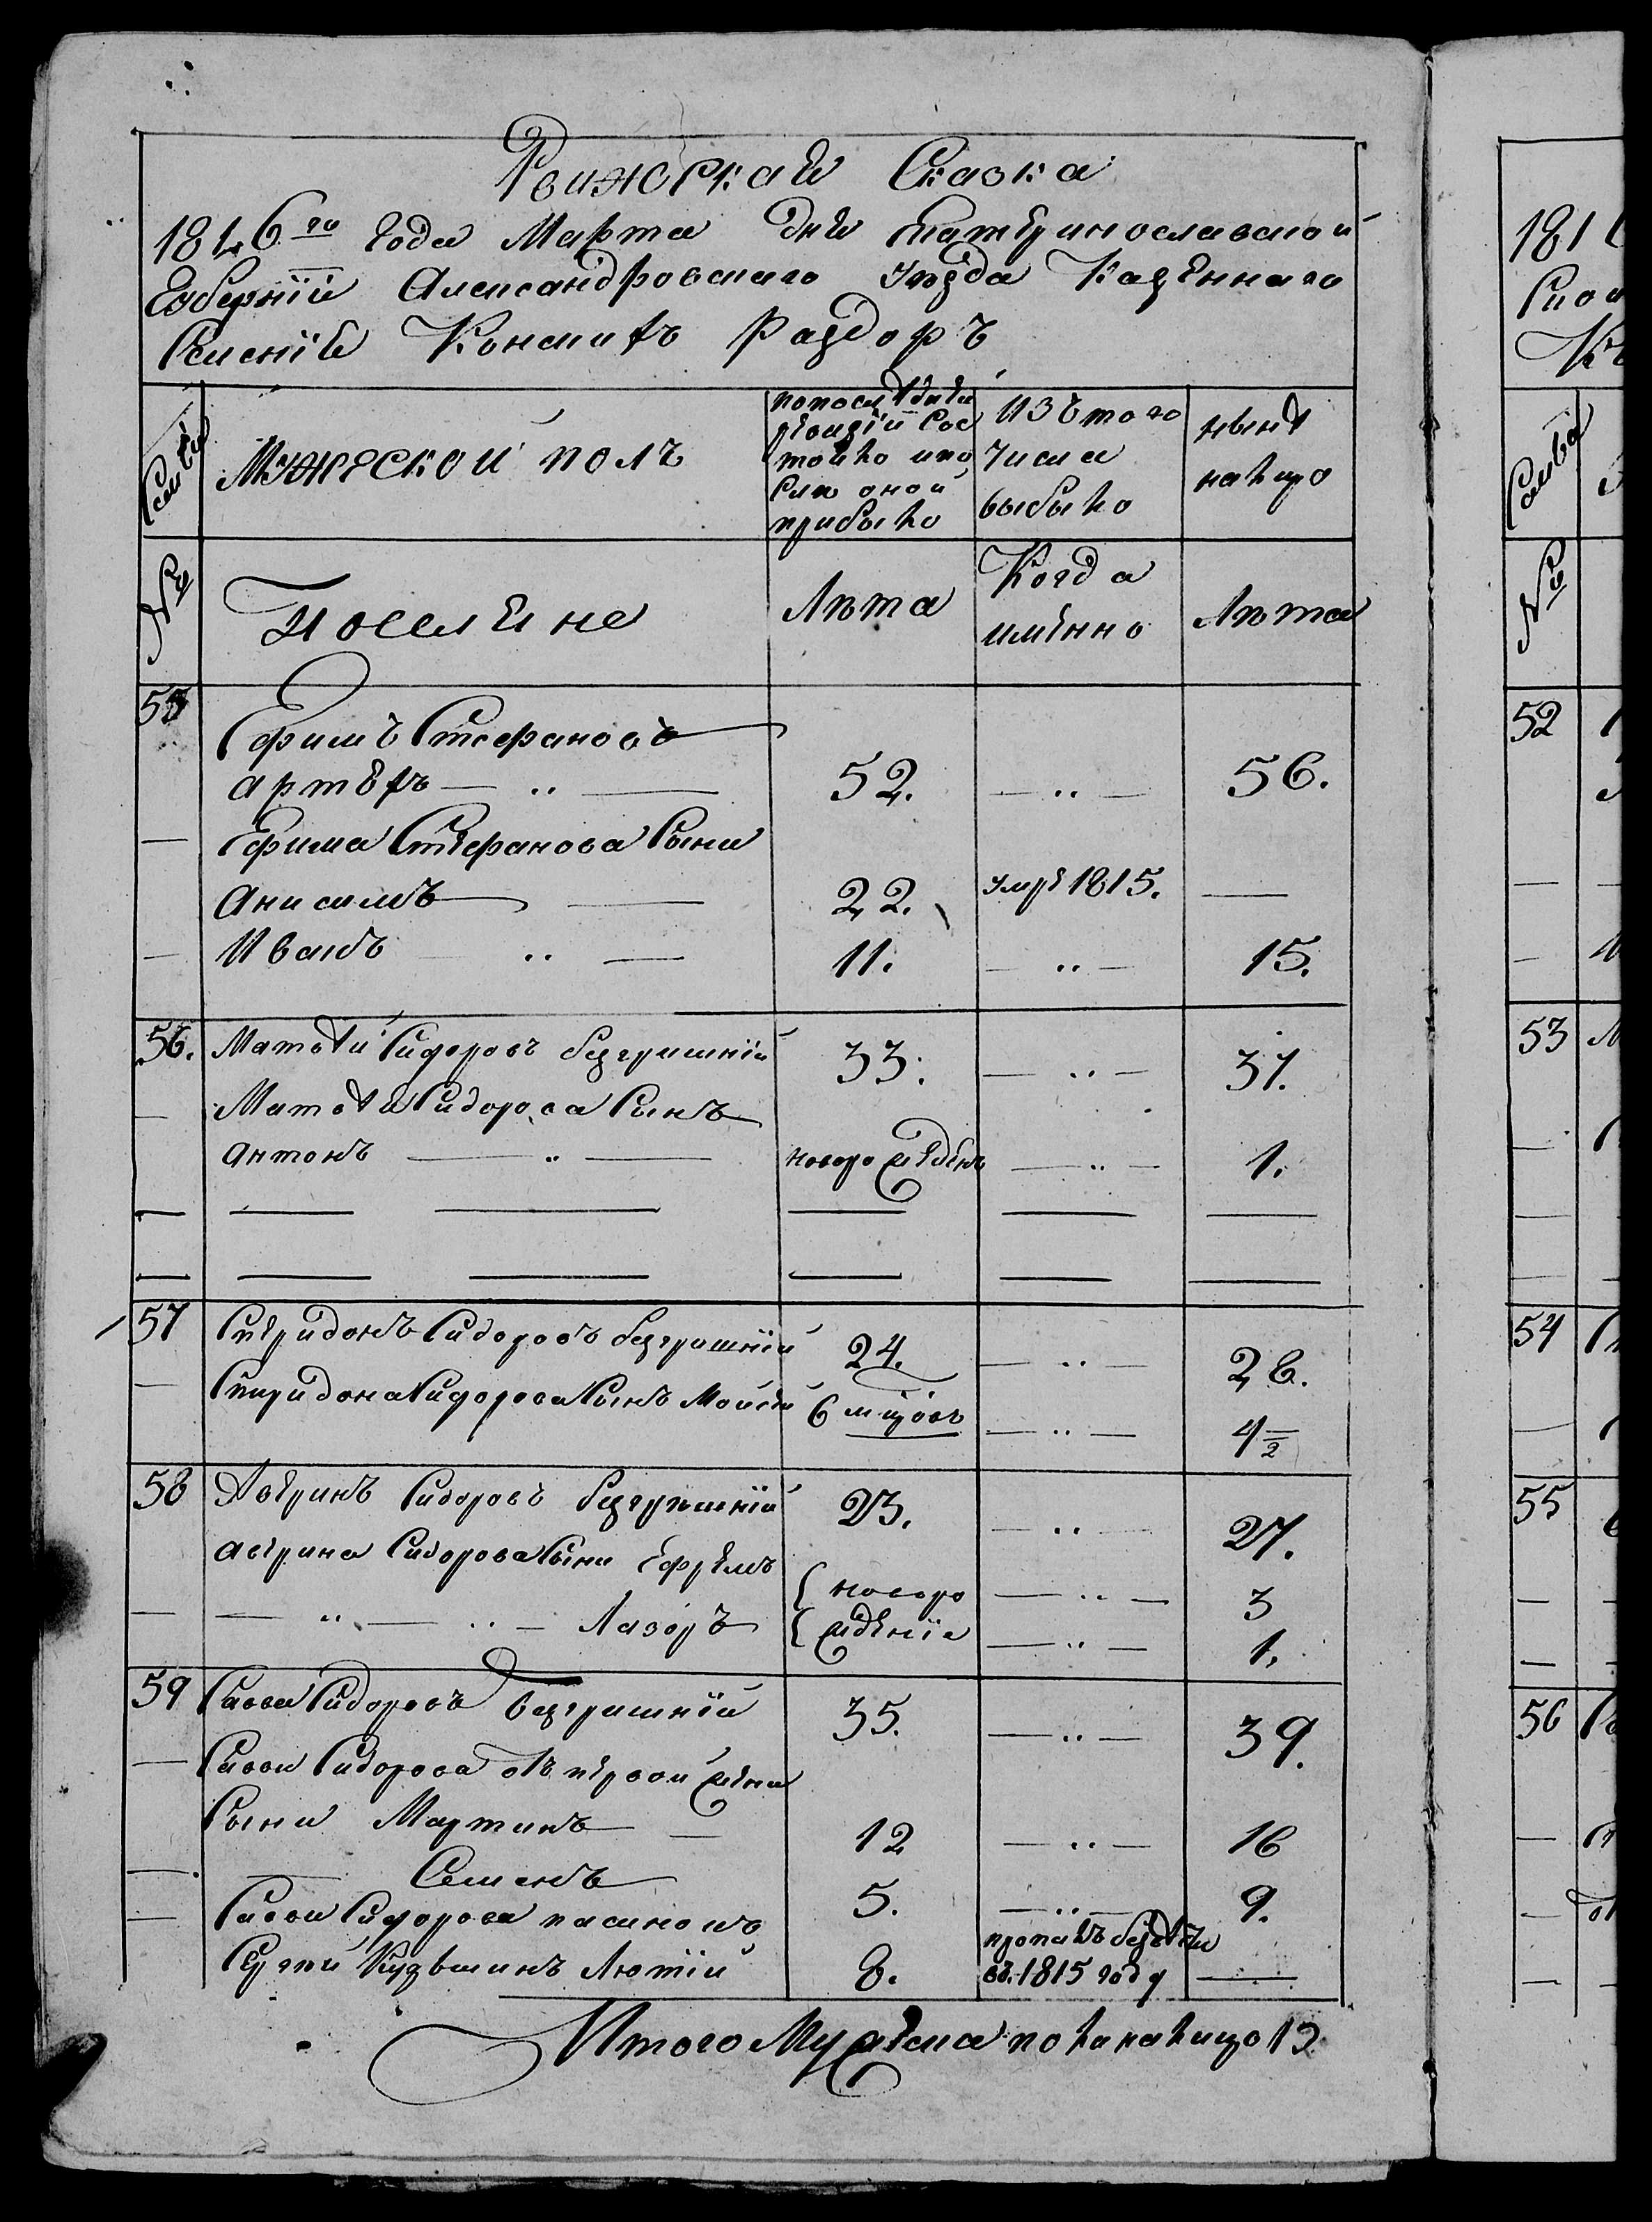 Ревижская Сказка
1816го года Марта дня Екатеринославской
Губернїи Александровскаго уезда Казеннаго
Селенїя Конскихъ Раздоръ
Семьи
Мужеской полъ
по последней
ревизїи сос
тояло и по
сле оной
прибыло
Изъ того
числа
выбыло
ныне
налицо
№
Поселяне
Лета
Когда
имянно
Лета
55
Ефимъ Стефановъ
артехъ — ·· —
52.
— ·· —
56.
— Ефима Стефанова Сыни
Анисимъ —
22.
умре 1815.
—
— Иванъ ·· —
11.
— ·· —
15.
56. Матвей Сидоровъ безгришнїй
33.
— ·· —
37.
— Матвея Сидорова Сынъ
антонъ — ·· —
новорожденъ
— ·· —
1.
57 Спиридонъ Сидоровъ безгришнїй
24.
— ·· —
28.
— Спиридона Сидорова Сынъ Мойсей
6 мцовъ
— ·· —
4 1/2
58 Аверинъ Сидоровъ безгришнїй
23.
— ·· —
27.
аверина Сидорова Сыни Ефремъ
новоро
— ·· —
3
— — ·· — ·· — Лазоръ
жденїе
— ·· —
1.
59 Савва Сидоровъ безгришнїй
35.
— ·· —
39.
— Савы Сидорова отъ первой жени
Сыни Мартинъ —
12
— ·· —
16
— — Семенъ
5.
— ·· —
9.
— Савы Сидорова пасинокъ
Сергей Лютїй
8.
пропалъ безвести
въ 1815 году
—
Итого Мужеска пола налицо 13
1816
52
53
54
55
56
Семьи
№